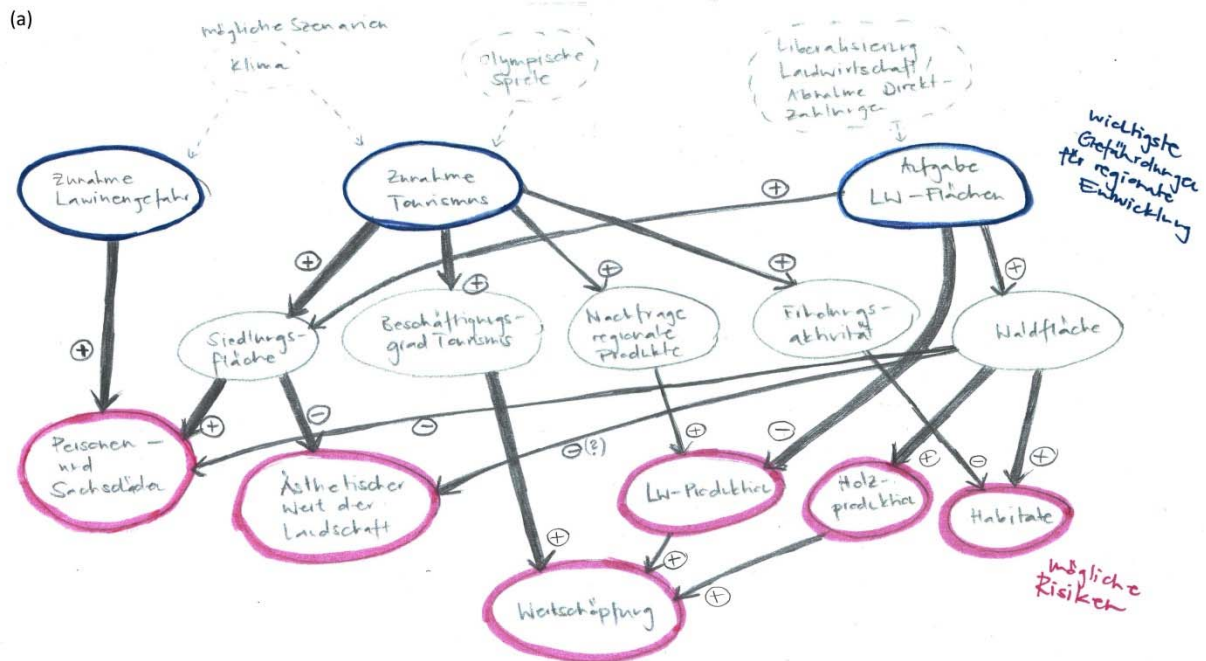 (a)
mögliche Szenarien
Klima
Olympische
Spiele
Liberalisierung
Landwirtschaft /
Abnahme Direkt-
zahlungen
wichtigste
Gefährdungen
für regionale
Entwicklung
Zunahme
Lawinengefahr
Zunahme
Tourismus
Aufgabe
LW-Flächen
+
+
+
+
+
+
+
Siedlungs-
fläche
Beschäftigungs-
grad Tourismus
Nachfrage
regionale
Produkte
Erholungs-
aktivität
Waldfläche
+
-
-
-(?)
+
-
+
-
+
Personen-
und
Sachschäden
Ästhetischer
Wert der
Landschaft
LW-Produktion
Holz-
produktion
Habitate
+
+
+
Wertschöpfung
mögliche
Risiken